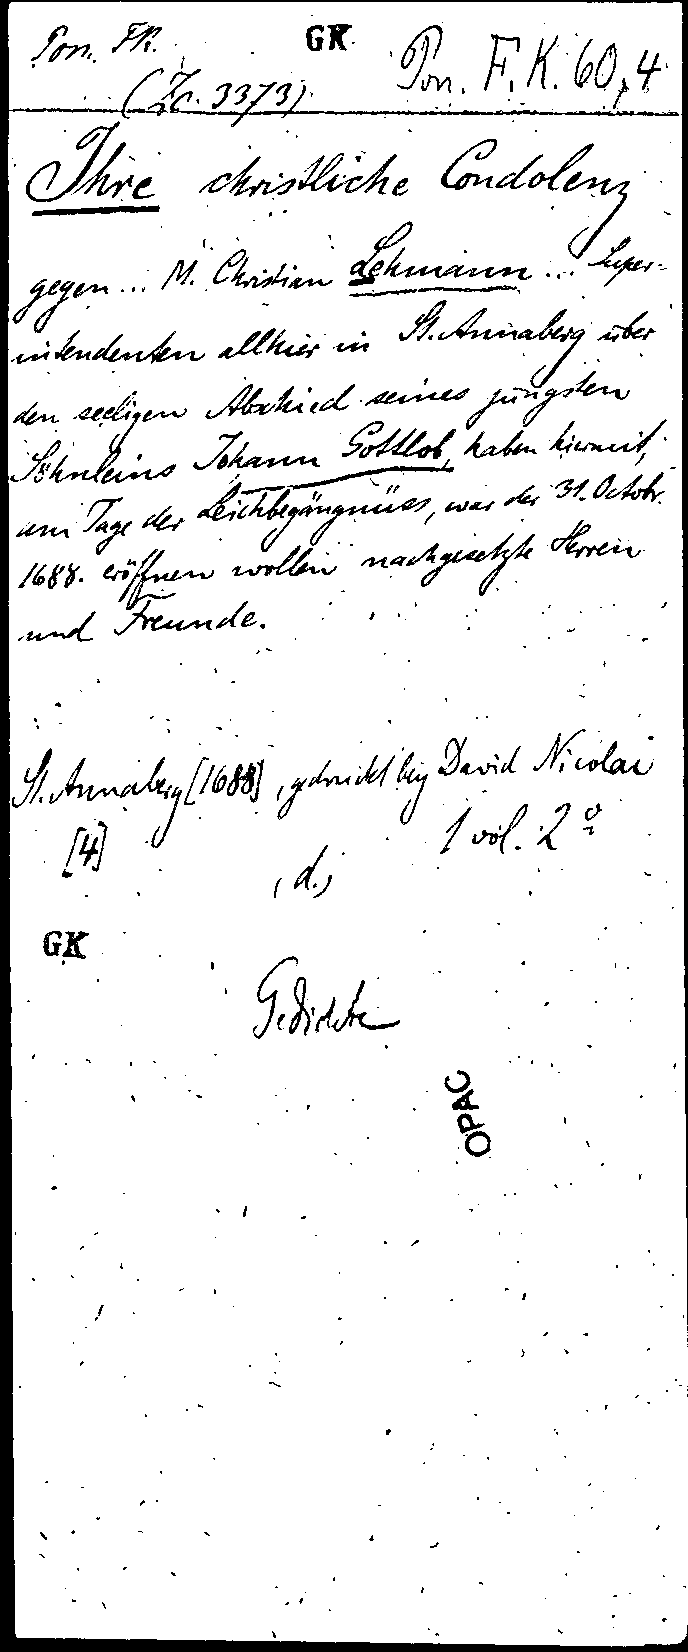 Pon. FK. GK Pon. F.K. 60,4
(Zc. 3373)
Ihre christliche Condolenz
gegen... M. Christian Lehmann... Super-
intendenten allhier in St. Annaberg über
den seeligen Abschied seines jüngsten
Söhnleins Johann Gottlob, haben hiermit,
am Tage der Leichbegängnüss, war der 31. Octobr.
1688. eröffnen wollen nachgesetzte Herren
und Freunde.
St. Annaberg [1688], gedruckt bey David Nicolai
[4] 1 vol. 2º
(d.)
GK
Gedichte
OPAC